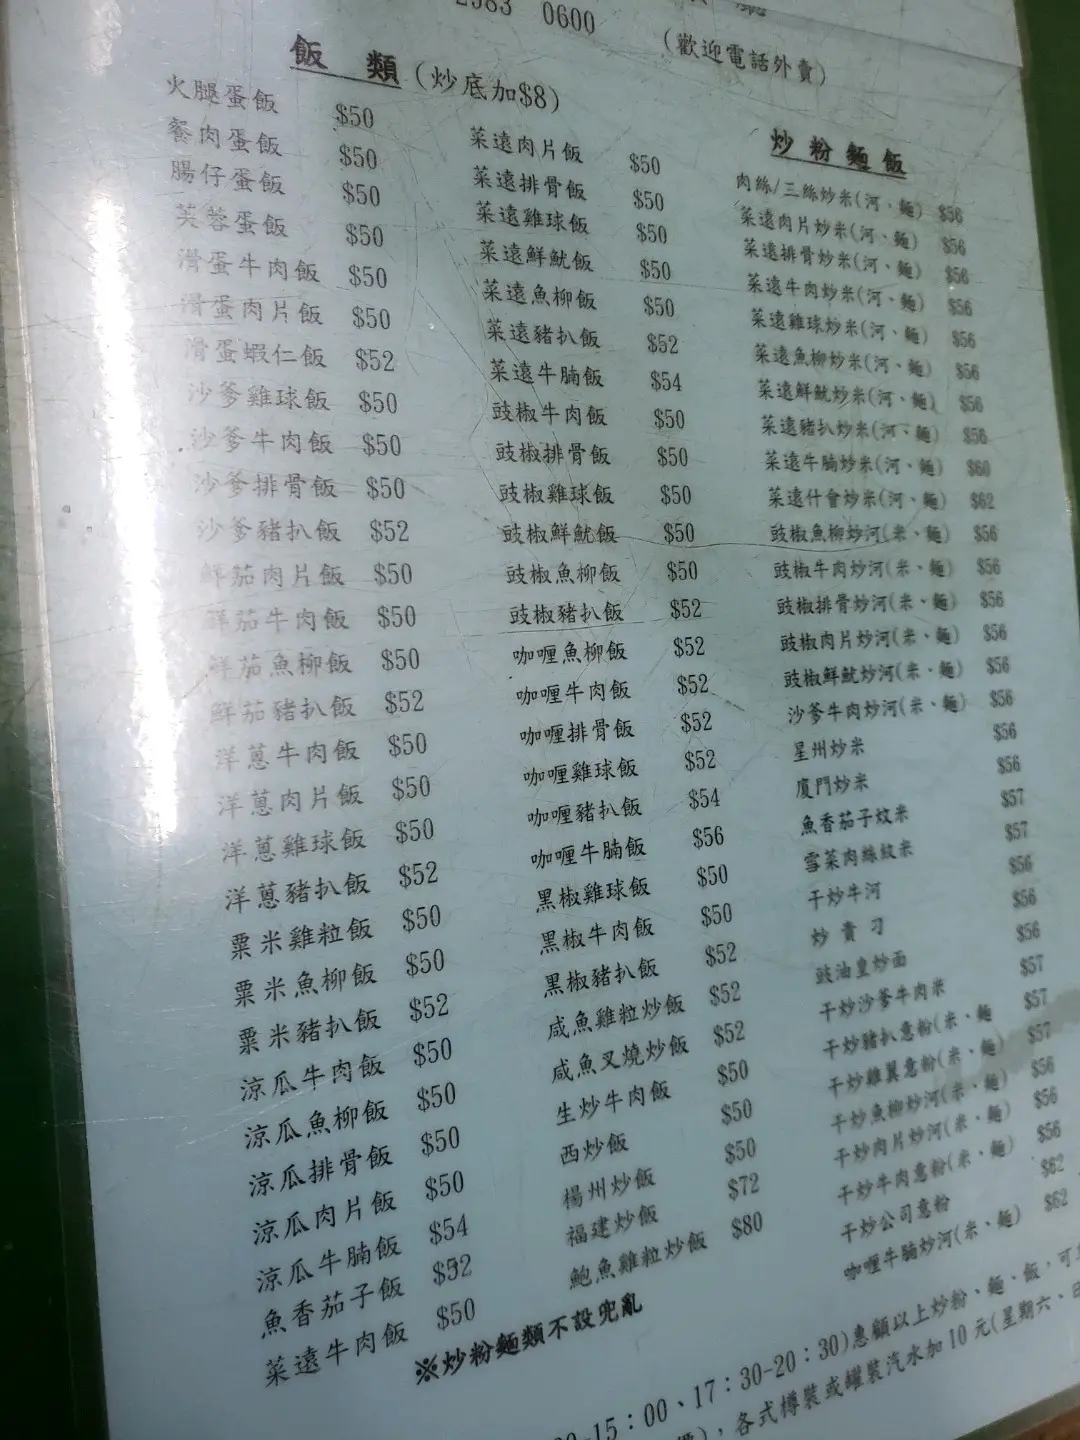 2983 0600
(歡迎電話外賣)
飯 類 (炒底加$8)
火腿蛋飯 $50
餐肉蛋飯 $50
腸仔蛋飯 $50
芙蓉蛋飯 $50
滑蛋牛肉飯 $50
滑蛋肉片飯 $50
滑蛋蝦仁飯 $52
沙爹雞球飯 $50
沙爹牛肉飯 $50
沙爹排骨飯 $50
沙爹豬扒飯 $52
鮮茄肉片飯 $50
鮮茄牛肉飯 $50
鮮茄魚柳飯 $50
鮮茄豬扒飯 $52
洋蔥牛肉飯 $50
洋蔥肉片飯 $50
洋蔥雞球飯 $50
洋蔥豬扒飯 $52
粟米雞粒飯 $50
粟米魚柳飯 $50
粟米豬扒飯 $52
涼瓜牛肉飯 $50
涼瓜魚柳飯 $50
涼瓜排骨飯 $50
涼瓜肉片飯 $50
涼瓜牛腩飯 $54
魚香茄子飯 $52
菜遠牛肉飯 $50
菜遠肉片飯 $50
菜遠排骨飯 $50
菜遠雞球飯 $50
菜遠鮮魷飯 $50
菜遠魚柳飯 $50
菜遠豬扒飯 $52
菜遠牛腩飯 $54
豉椒牛肉飯 $50
豉椒排骨飯 $50
豉椒雞球飯 $50
豉椒鮮魷飯 $50
豉椒魚柳飯 $50
豉椒豬扒飯 $52
咖喱魚柳飯 $52
咖喱牛肉飯 $52
咖喱排骨飯 $52
咖喱雞球飯 $52
咖喱豬扒飯 $54
咖喱牛腩飯 $56
黑椒雞球飯 $50
黑椒牛肉飯 $50
黑椒豬扒飯 $52
咸魚雞粒炒飯 $52
咸魚叉燒炒飯 $52
生炒牛肉飯 $50
西炒飯 $50
楊州炒飯 $50
福建炒飯 $72
鮑魚雞粒炒飯 $80
※炒粉麵類不設兜亂
炒粉麵飯
肉絲/三絲炒米(河、麵) $56
菜遠肉片炒米(河、麵) $56
菜遠排骨炒米(河、麵) $56
菜遠牛肉炒米(河、麵) $56
菜遠雞球炒米(河、麵) $56
菜遠魚柳炒米(河、麵) $56
菜遠鮮魷炒米(河、麵) $56
菜遠豬扒炒米(河、麵) $56
菜遠牛腩炒米(河、麵) $60
菜遠什會炒米(河、麵) $62
豉椒魚柳炒河(米、麵) $56
豉椒牛肉炒河(米、麵) $56
豉椒排骨炒河(米、麵) $56
豉椒肉片炒河(米、麵) $56
豉椒鮮魷炒河(米、麵) $56
沙爹牛肉炒河(米、麵) $56
星州炒米 $56
廈門炒米 $56
魚香茄子炆米 $57
雪菜肉絲炆米 $57
干炒牛河 $56
炒貴刁 $56
豉油皇炒面 $56
干炒沙爹牛肉米 $57
干炒豬扒意粉(米、麵 $57
干炒雞翼意粉(米、麵) $57
干炒魚柳炒河(米、麵) $56
干炒肉片炒河(米、麵) $56
干炒牛肉意粉(米、麵) $56
干炒公司意粉 $62
咖喱牛腩炒河(米、麵) $62
-15:00、17:30-20:30)惠顧以上炒粉、麵、飯，可
，各式樽裝或罐裝汽水加10元(星期六、日